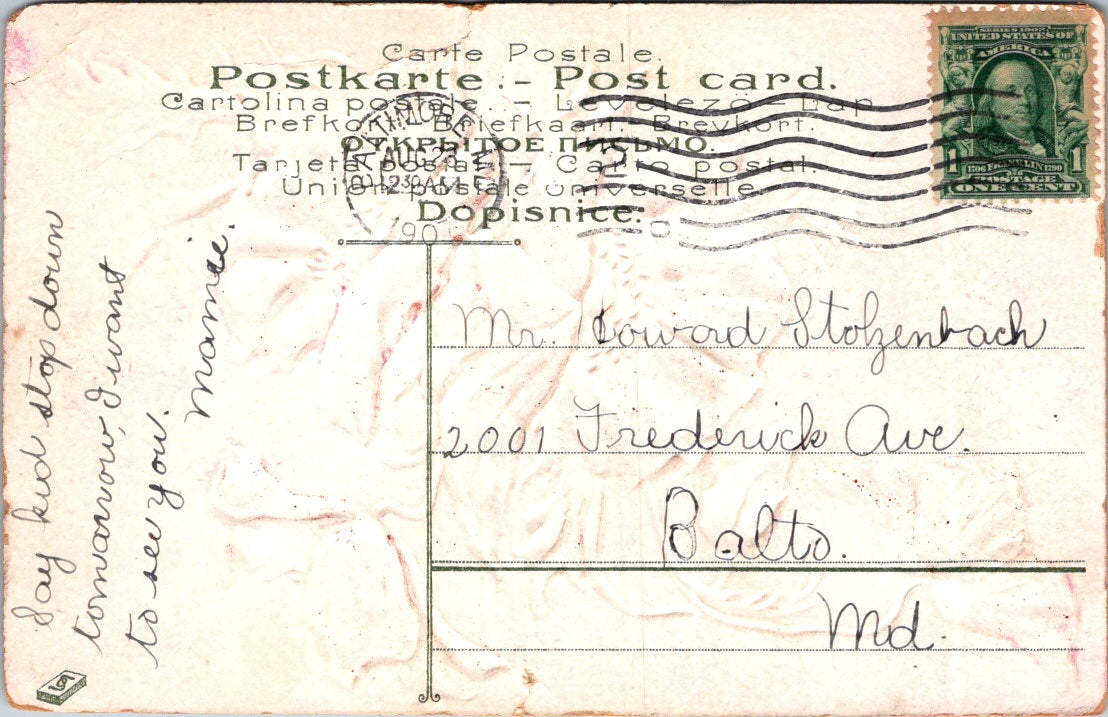 Carte Postale.
Postkarte - Post card.
Cartolina postale. - Levelező-Lap
Brefkort. Briefkaart. Brevkort.
ОТКРЫТОЕ ПИСЬМО.
Tarjeta postal - Carto postal.
Union postale universelle.
Dopisnice.
BALTIMORE, MD.
AUG 23
12 30 AM
190
SERIES 1902
UNITED STATES OF
AMERICA
1706 FRANKLIN 1790
1 POSTAGE 1
ONE CENT
Say kid stop down
tomorrow, I want
to see you.
Mamie.
Mr. Howard Stolzenbach
2001 Frederick Ave.
Balto.
Md.